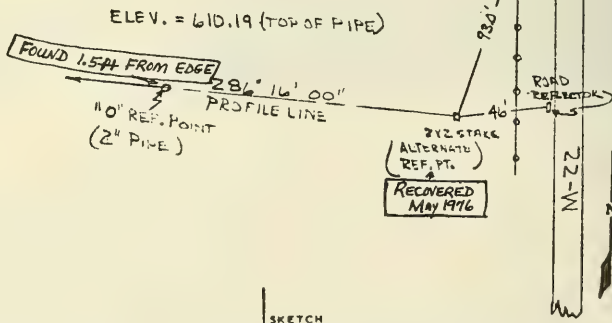 ELEV. = 610.19 (TOP OF PIPE)
930'
FOUND 1.5ft FROM EDGE
286° 16' 00"
PROFILE LINE
"0" REF. POINT
(2" PIPE)
46'
ROAD
REFLECTOR
5
2X2 STAKE
(ALTERNATE
REF. PT.)
RECOVERED
May 1976
22-W
SKETCH